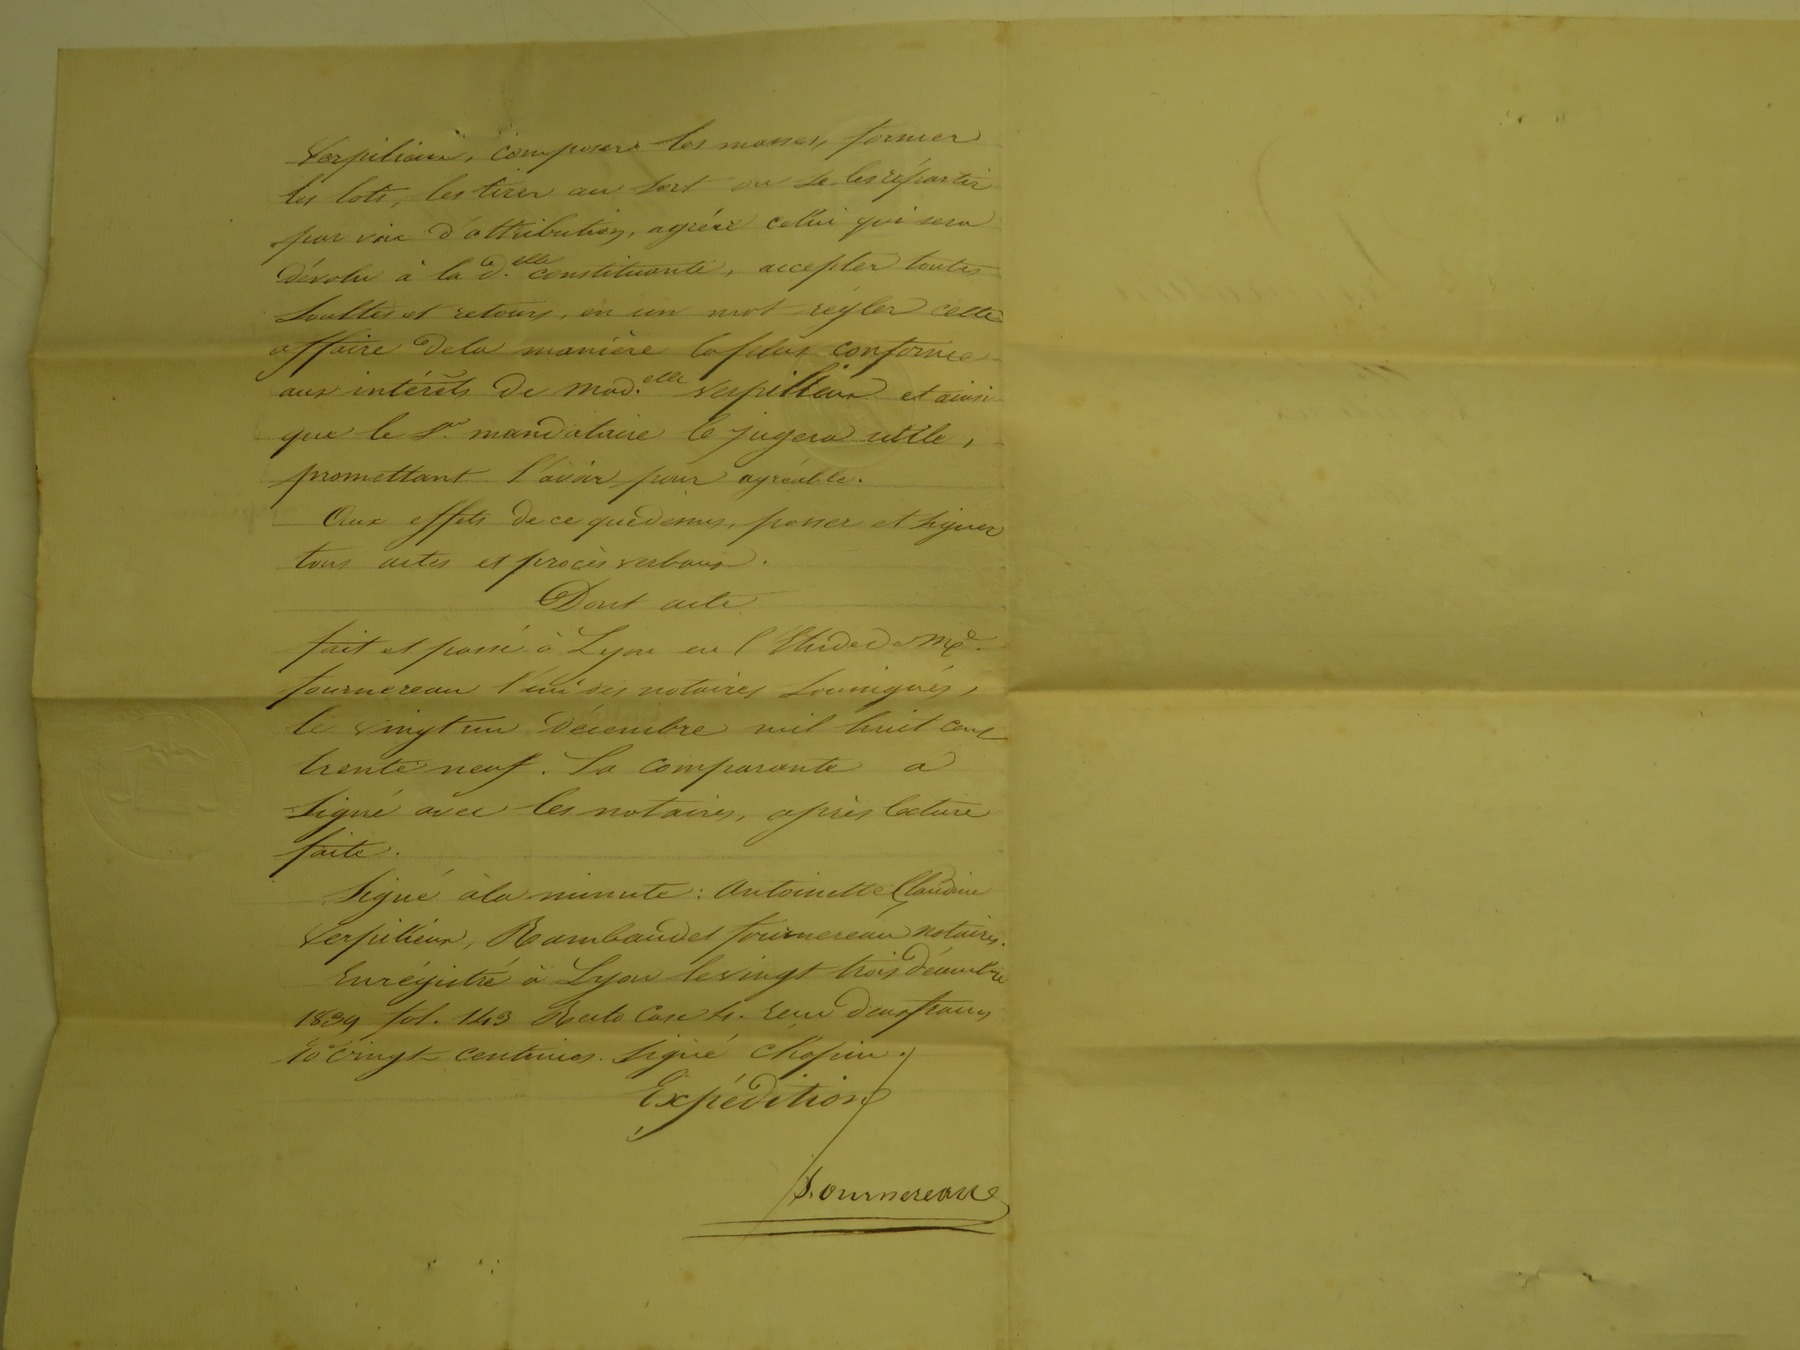 Verpilieux, composer les masses, former
les lots, les tirer au sort ou se les répartir
par voie d'attribution, agréer celui qui sera
dévolu à la d.elle constituante, accepter toutes
soultes et retours, en un mot régler cette
affaire de la manière la plus conforme
aux intérêts de Mad.elle Verpilleux et ainsi
que le Sr. mandataire le jugera utile,
promettant l'avoir pour agréable.
Aux effets de ce que dessus, passer et signer
tous actes et procès verbaux.
Dont acte
fait et passé à Lyon en l'Etude de Me.
fournereau l'un des notaires soussignés,
le vingt un décembre mil huit cent
trente neuf. La comparante a
signé avec les notaires, après lecture
faite.
Signé à la minute : Antoinette Claudine
Verpilieux, Rambaud et fournereau notaires.
Enrégistré à Lyon le vingt trois décembre
1839 fol. 143 Recto Case 4. Reçu deux francs
10.e vingt centimes. Signé Chopin.
Expédition
fournereau